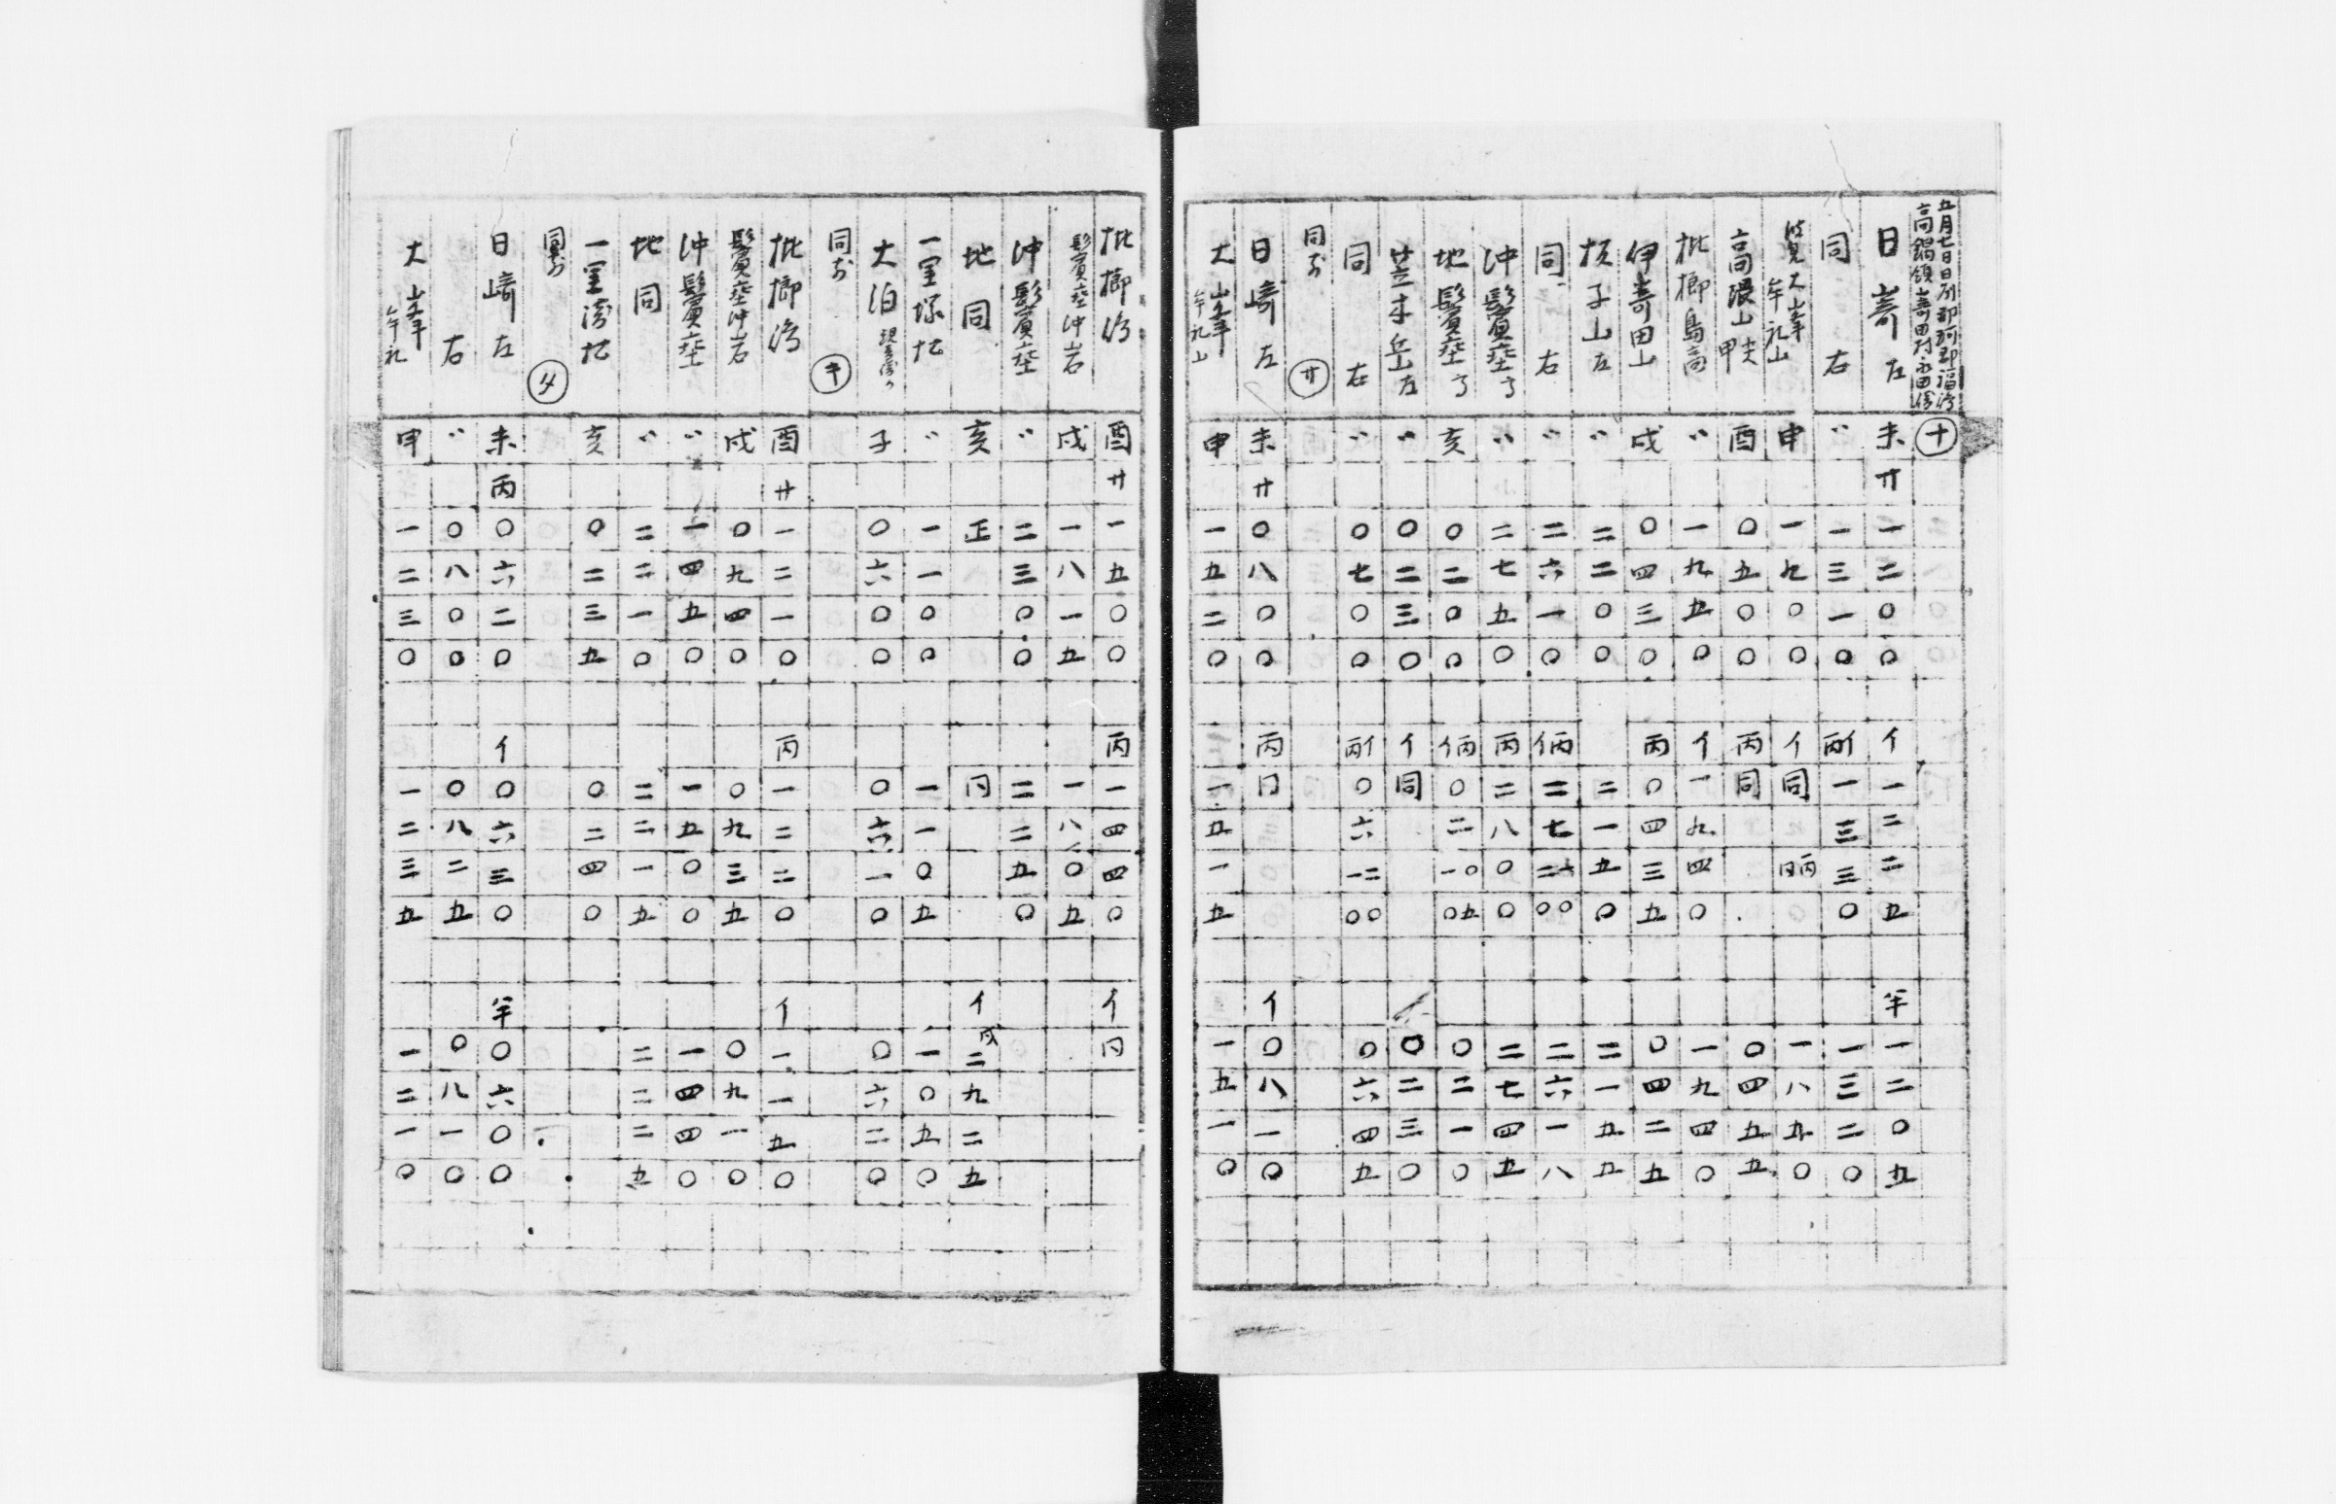 五月七日日州那珂郡福浦
高鍋領嵜田村永田浦 十
日嵜左 未 廾 一二〇〇 イ 一二二五 半 一二〇五
同右 〃 一三一〇 丙イ 一三三〇 一三二〇
波見大山峯牟礼山 申 一九〇〇 イ 同 同丙 一八五〇
高隈山 酉 〇五〇〇 丙 同 〇四五五
枇榔島高 〃 一九五〇 イ 一九四〇 一九四〇
伊嵜田山 戌 〇四三〇 丙 〇四三五 〇四二五
板子山左 〃 二二〇〇 二一五〇 二一五五
同右 〃 二六一〇 イ丙 二七 〇〇 二六一八
沖鬢垂 〃 二七五〇 丙 二八〇〇 二七四五
地鬢垂 亥 〇二〇〇 イ丙 〇二一〇〇五 〇二一〇
笠木岳左 〃 〇二三〇 イ 同 〇二三〇
同右 〃 〇七〇〇 丙イ 〇六一二〇〇 〇六四五
同所 廾
日崎左 未 廾 〇八〇〇 丙 同 イ 〇八一〇
大山峯牟礼山 申 一五二〇 一五一五 一五一〇
枇榔浮 酉 廾 一五〇〇 丙 一四四〇 イ 同
鬢垂沖岩 戌 一八一五 一八〇五
沖鬢垂 〃 二三〇〇 二二五〇
地同 亥 正 同 イ 戌 二九二五
一里塚 〃 一一〇〇 一一〇五 一〇五〇
大泊 子 〇六〇〇 〇六一〇 〇六二〇
同所 キ
枇榔浮 酉 廾 一二一〇 丙 一二二〇 イ 一一五〇
鬢垂沖岩 戌 〇九四〇 〇九三五 〇九一〇
沖鬢垂 〃 一四五〇 一五〇〇 一四四〇
地同 〃 二二一〇 二二一五 二二二五
一里 亥 〇二三五 〇二四〇
同所 メ
日崎左 未 丙 〇六二〇 イ 〇六三〇 半 〇六〇〇
右 〃 〇八〇〇 〇八二五 〇八一〇
大山峯牟礼 申 一二三〇 一二三五 一二一〇